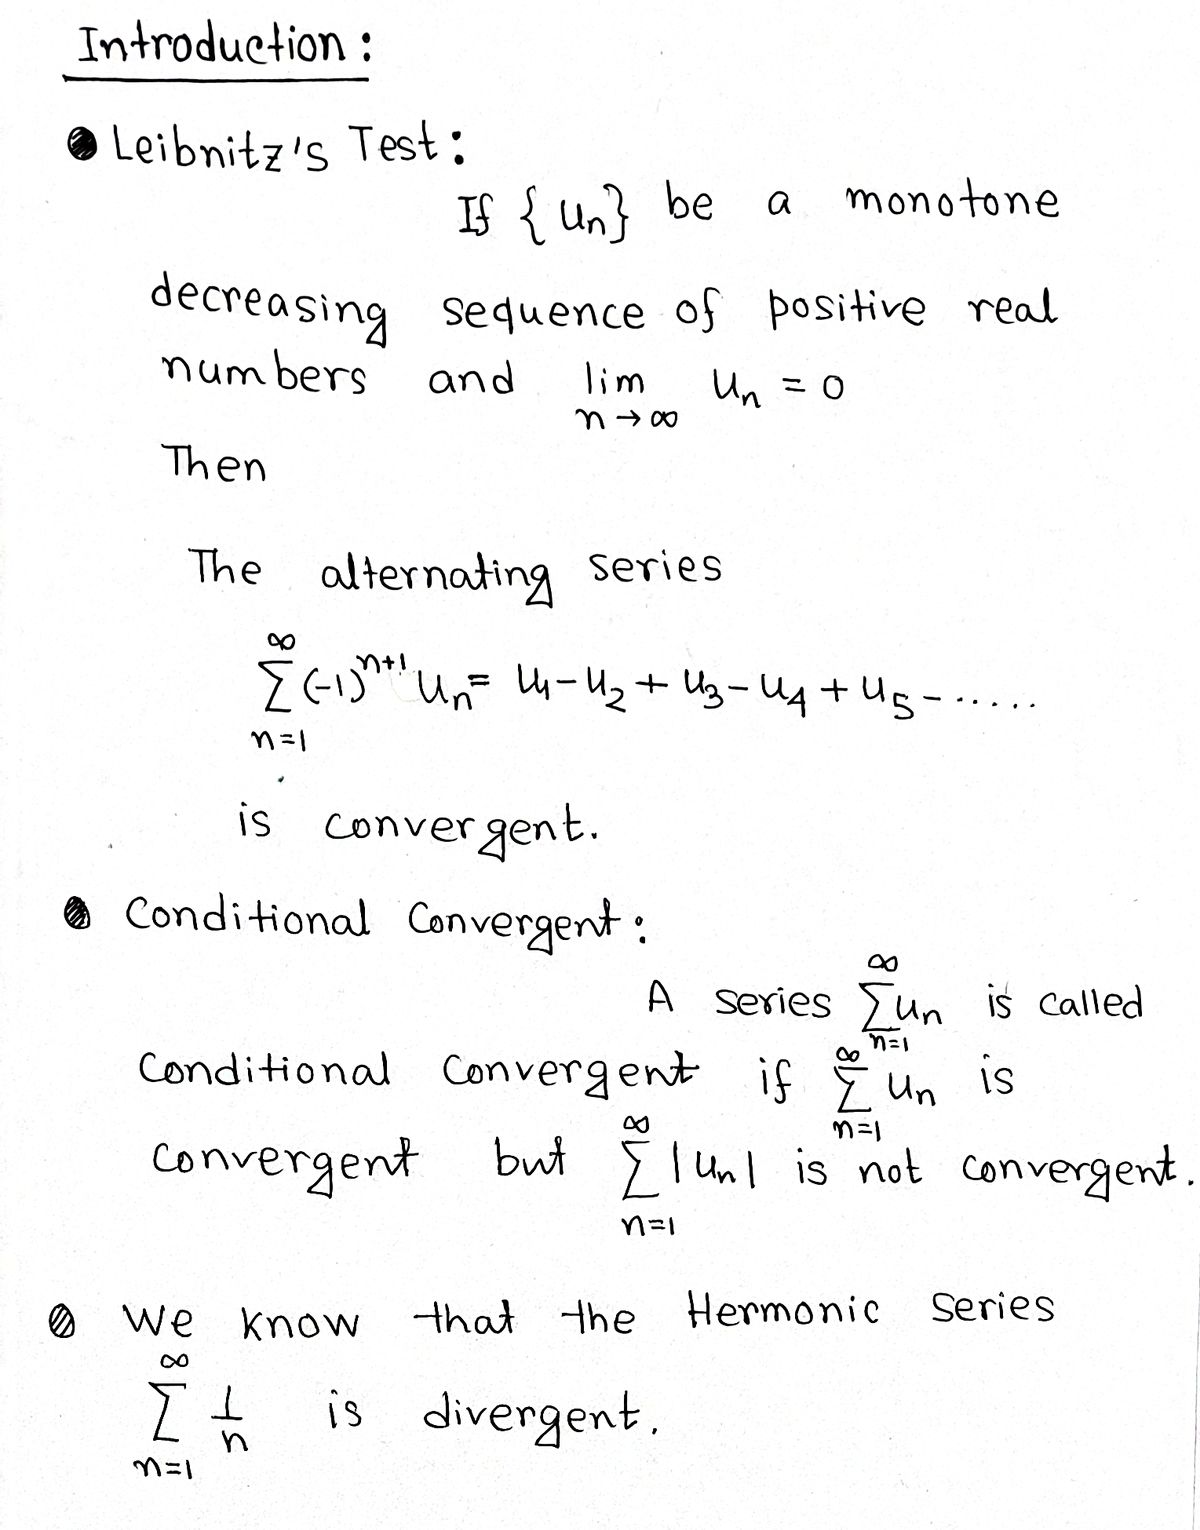 Introduction:
● Leibnitz's Test:
If {uₙ} be a monotone
decreasing sequence of positive real
numbers and lim n→∞ uₙ = 0
Then
The alternating series
∑_{n=1}^{∞} (-1)^{n+1} uₙ = u₁ - u₂ + u₃ - u₄ + u₅ - ......
is convergent.
● Conditional Convergent:
A series ∑_{n=1}^{∞} uₙ is called
Conditional Convergent if ∑_{n=1}^{∞} uₙ is
convergent but ∑_{n=1}^{∞} |uₙ| is not convergent.
● We know that the Hermonic Series
∑_{n=1}^{∞} 1/n is divergent.